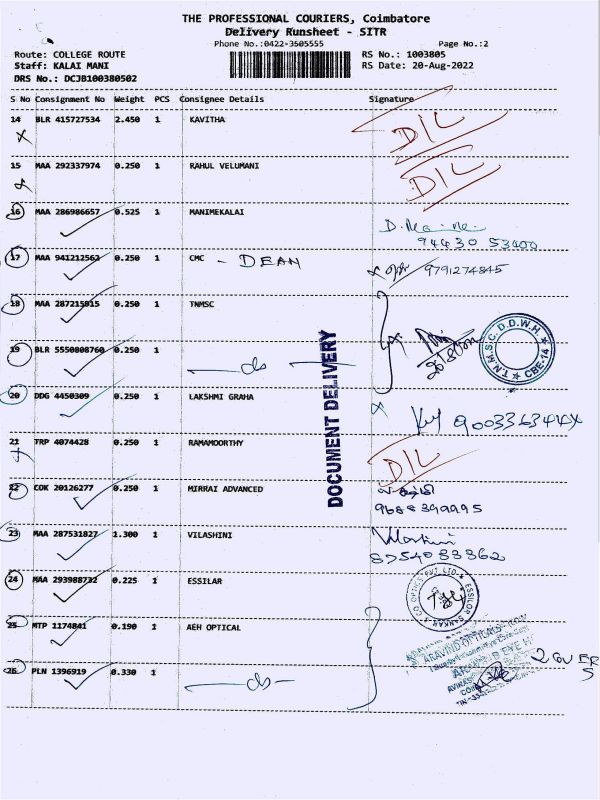 THE PROFESSIONAL COURIERS, Coimbatore
Delivery Runsheet - SITR
Phone No.:0422-3505555 Page No.:2
Route: COLLEGE ROUTE RS No.: 1003805
Staff: KALAI MANI RS Date: 20-Aug-2022
DRS No.: DCJB100380502
S No Consignment No Weight PCS Consignee Details Signature
14 BLR 415727534 2.450 1 KAVITHA D/L
15 MAA 292337974 0.250 1 RAHUL VELUMANI D/L
16 MAA 286986657 0.525 1 MANIMEKALAI
94430 53400
17 MAA 941212562 0.250 1 CMC - DEAN 9791274845
18 MAA 287215915 0.250 1 TNMSC
T.N.M.S.C. D.D.W.H. CBE-14
19 BLR 5550808760 0.250 1 do
DOCUMENT DELIVERY
20 DDG 4450309 0.250 1 LAKSHMI GRAHA
21 TRP 4074428 0.250 1 RAMAMOORTHY D/L
22 COK 20126277 0.250 1 MIRRAI ADVANCED
9688399995
23 MAA 287531827 1.300 1 VILASHINI Vilashini
8754033362
24 MAA 293988732 0.225 1 ESSILAR
25 MTP 1174841 0.190 1 AEH OPTICAL
26 PLN 1396919 0.330 1 do